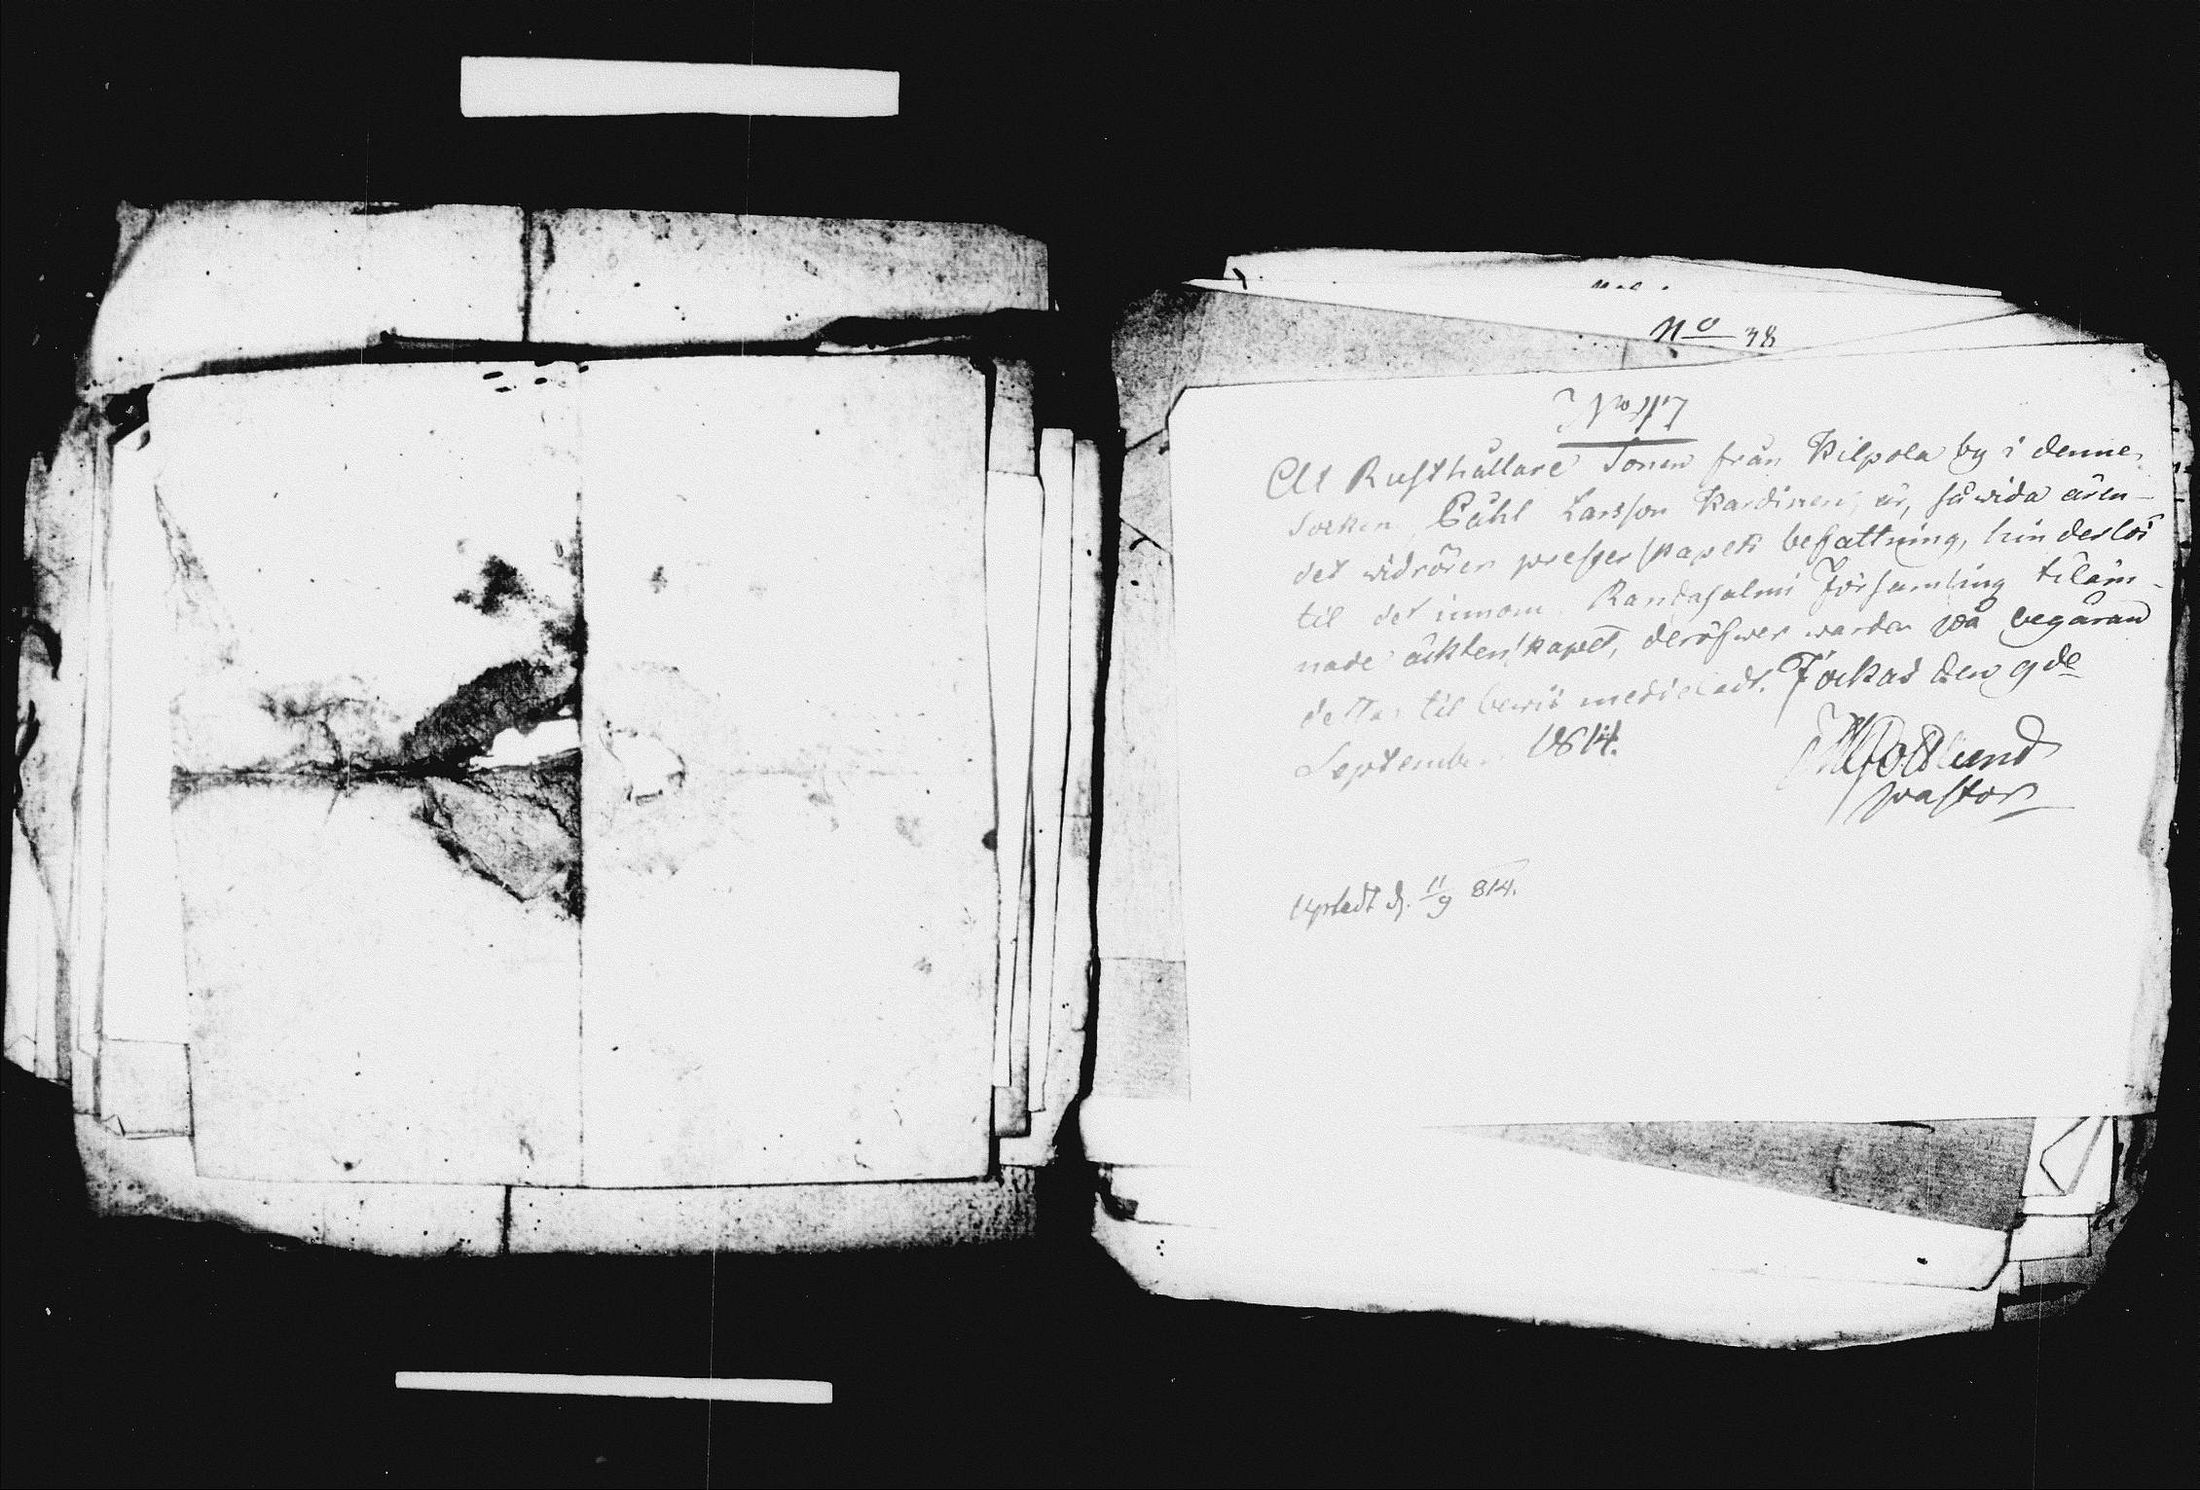 No 38
No 47
At Rusthållare Sonen från Kilpola by i denne
Socken, Påhl Larsson Kardinen, är, såwida ären-
det widrörer presterskapets befattning, hinderlös
til det innom Randasalmi Församling tiläm-
nade äktenskapet, deröfwer warder på begäran
detta til bewis meddeladt. Jockas den 9de
September 1814.
Gottlund
pastor
Uplädt d. 11/9 814.